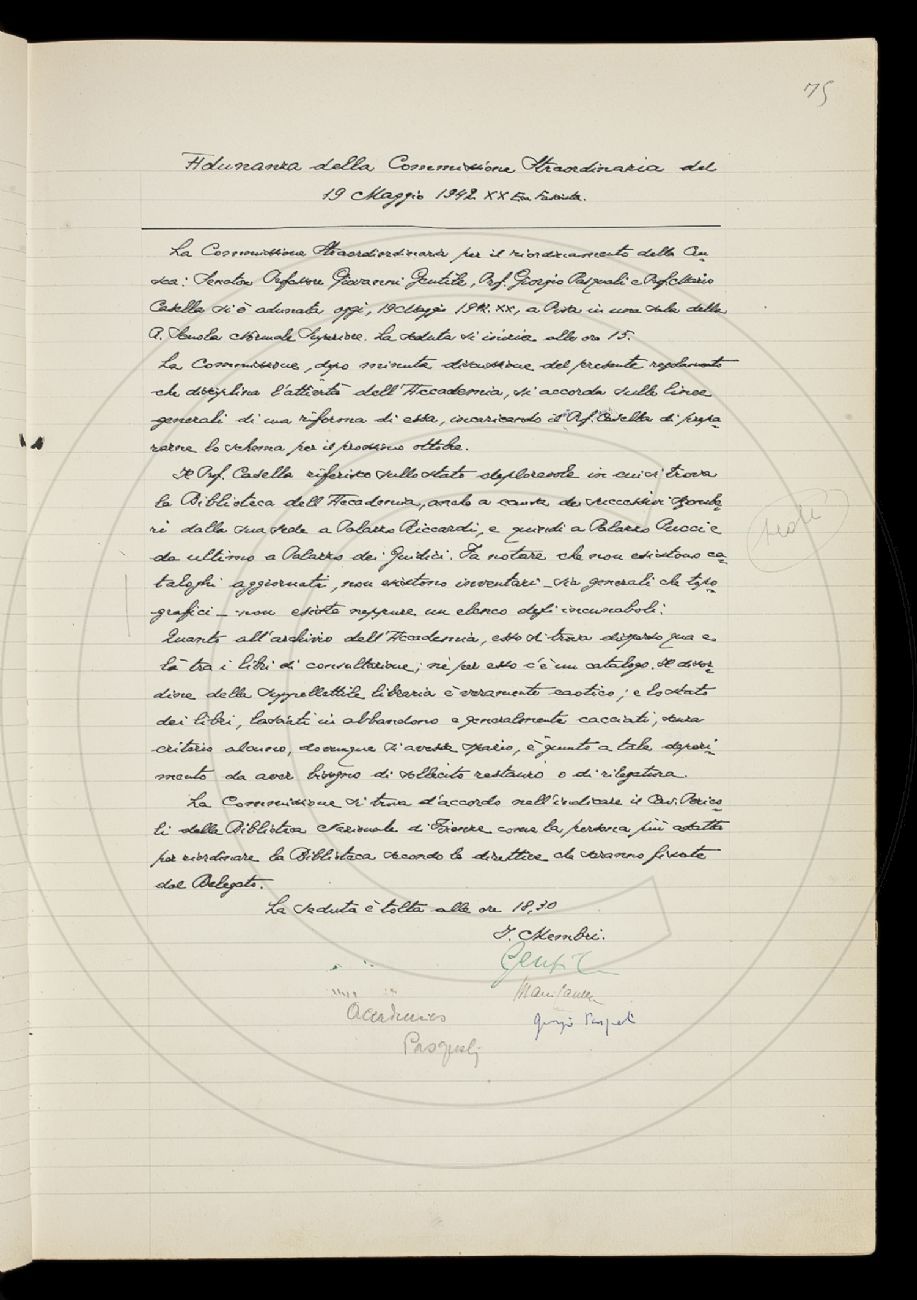 75
Adunanza della Commissione Straordinaria del
19 Maggio 1942 XX Era Fascista.
La Commissione Straordinaria per il riordinamento della Cru-
sca: Senatore Professore Giovanni Gentile, Prof. Giorgio Pasquali e Prof. Mario
Casella si è adunata oggi, 19 Maggio 1942. XX, a Pisa in una sala della
R. Scuola Normale Superiore. La seduta si inizia alle ore 15.
La Commissione, dopo minuta discussione del presente regolamento
che disciplina l'attività dell'Accademia, si accorda sulle linee
generali di una riforma di essa, incaricando il Prof. Casella di prepa-
rarne lo schema per il prossimo ottobre.
Il Prof. Casella riferisce sullo stato deplorevole in cui si trova
la Biblioteca dell'Accademia, anche a causa dei successivi sgombe-
ri dalla sua sede a Palazzo Riccardi, e quindi a Palazzo Pucci e
da ultimo a Palazzo dei Giudici. Fa notare che non esistono ca-
taloghi aggiornati, non esistono inventari - sia generali che topo-
grafici - non esiste neppure un elenco degli incunaboli.
Quanto all'archivio dell'Accademia, esso si trova disperso qua e
là tra i libri di consultazione; nè per esso c'è un catalogo. Il disor-
dine della suppellettile libraria è veramente caotico; e lo stato
dei libri, lasciati in abbandono e generalmente cacciati, senza
criterio alcuno, dovunque si avesse spazio, è giunto a tale deperi-
mento da aver bisogno di sollecito restauro o di rilegatura.
La Commissione si trova d'accordo nell'indicare il Cav. Perico-
li della Biblioteca Nazionale di Firenze come la persona più adatta
per riordinare la Biblioteca secondo le direttive che saranno fissate
dal Delegato.
La seduta è tolta alle ore 18,30
I Membri.
Gentile
Mario Casella
Accademico
Giorgio Pasquali
Pasquali